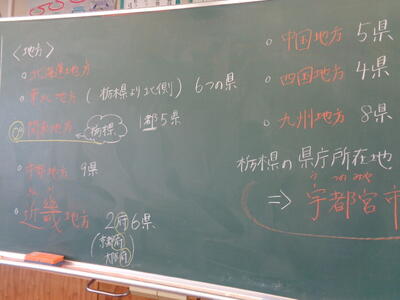 〈地方〉
○ 北海道地方
○ 東北地方 (栃木県より北側) 6つの県
関東地方 栃木県 1都5県
○ 中部地方 9県
○ 近畿地方 2府6県
京都府
大阪府
○ 中国地方 5県
○ 四国地方 4県
○ 九州地方 8県
栃木県の県庁所在地
う つの みや
⇒ 宇都宮市